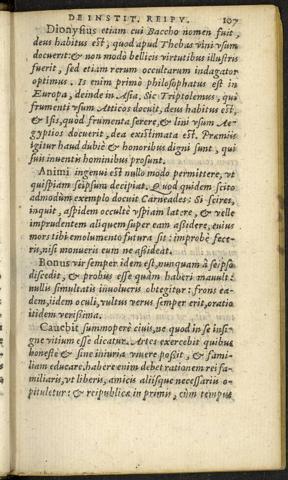 DE INSTIT. REIPV. 107
Dionysius etiam cui Baccho nomen fuit,
deus habitus est, quod apud Thebas vini vsum
docuerit: & non modò bellicis virtutibus illustris
fuerit, sed etiam rerum occultarum indagator
optimus. Is enim primò philosophatus est in
Europa, deinde in Asia. Sic Triptolemus, qui
frumenti vsum Atticos docuit, deus habitus est,
& Isis, quòd frumenta serere, & lini vsum Ae-
gyptios docuerit, dea existimata est. Præmijs
igitur haud dubiè & honoribus digni sunt, qui
suis inuentis hominibus prosunt.
Animi ingenui est nullo modo permittere, vt
quispiam seipsum decipiat. Quod quidem scito
admodum exemplo docuit Carneades: Si scires,
inquit, aspidem occultè vspiam latere, & velle
imprudentem aliquem super eam assidere, cuius
mors tibi emolumento futura sit: improbè fece-
ris, nisi monueris eum ne assideat.
Bonus vir semper idem est, nunquam à seipso
discedit, & probus esse quàm haberi mauult:
nullis simultatis inuolucris obtegitur: frons ea-
dem, iidem oculi, vultus verus semper erit, oratio
itidem verissima.
Cauebit summopere ciuis, ne quod in se insi-
gne vitium esse dicatur. Artes exercebit quibus
honestè & sine iniuria viuere possit, & fami-
liam educare, habere enim debet rationem rei fa-
miliaris, vt liberis, amicis aliisque necessariis o-
pituletur: & reipublicæ in primis, cùm tempus